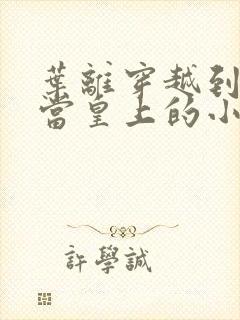 葉離穿越到
當皇上的小
許學誠